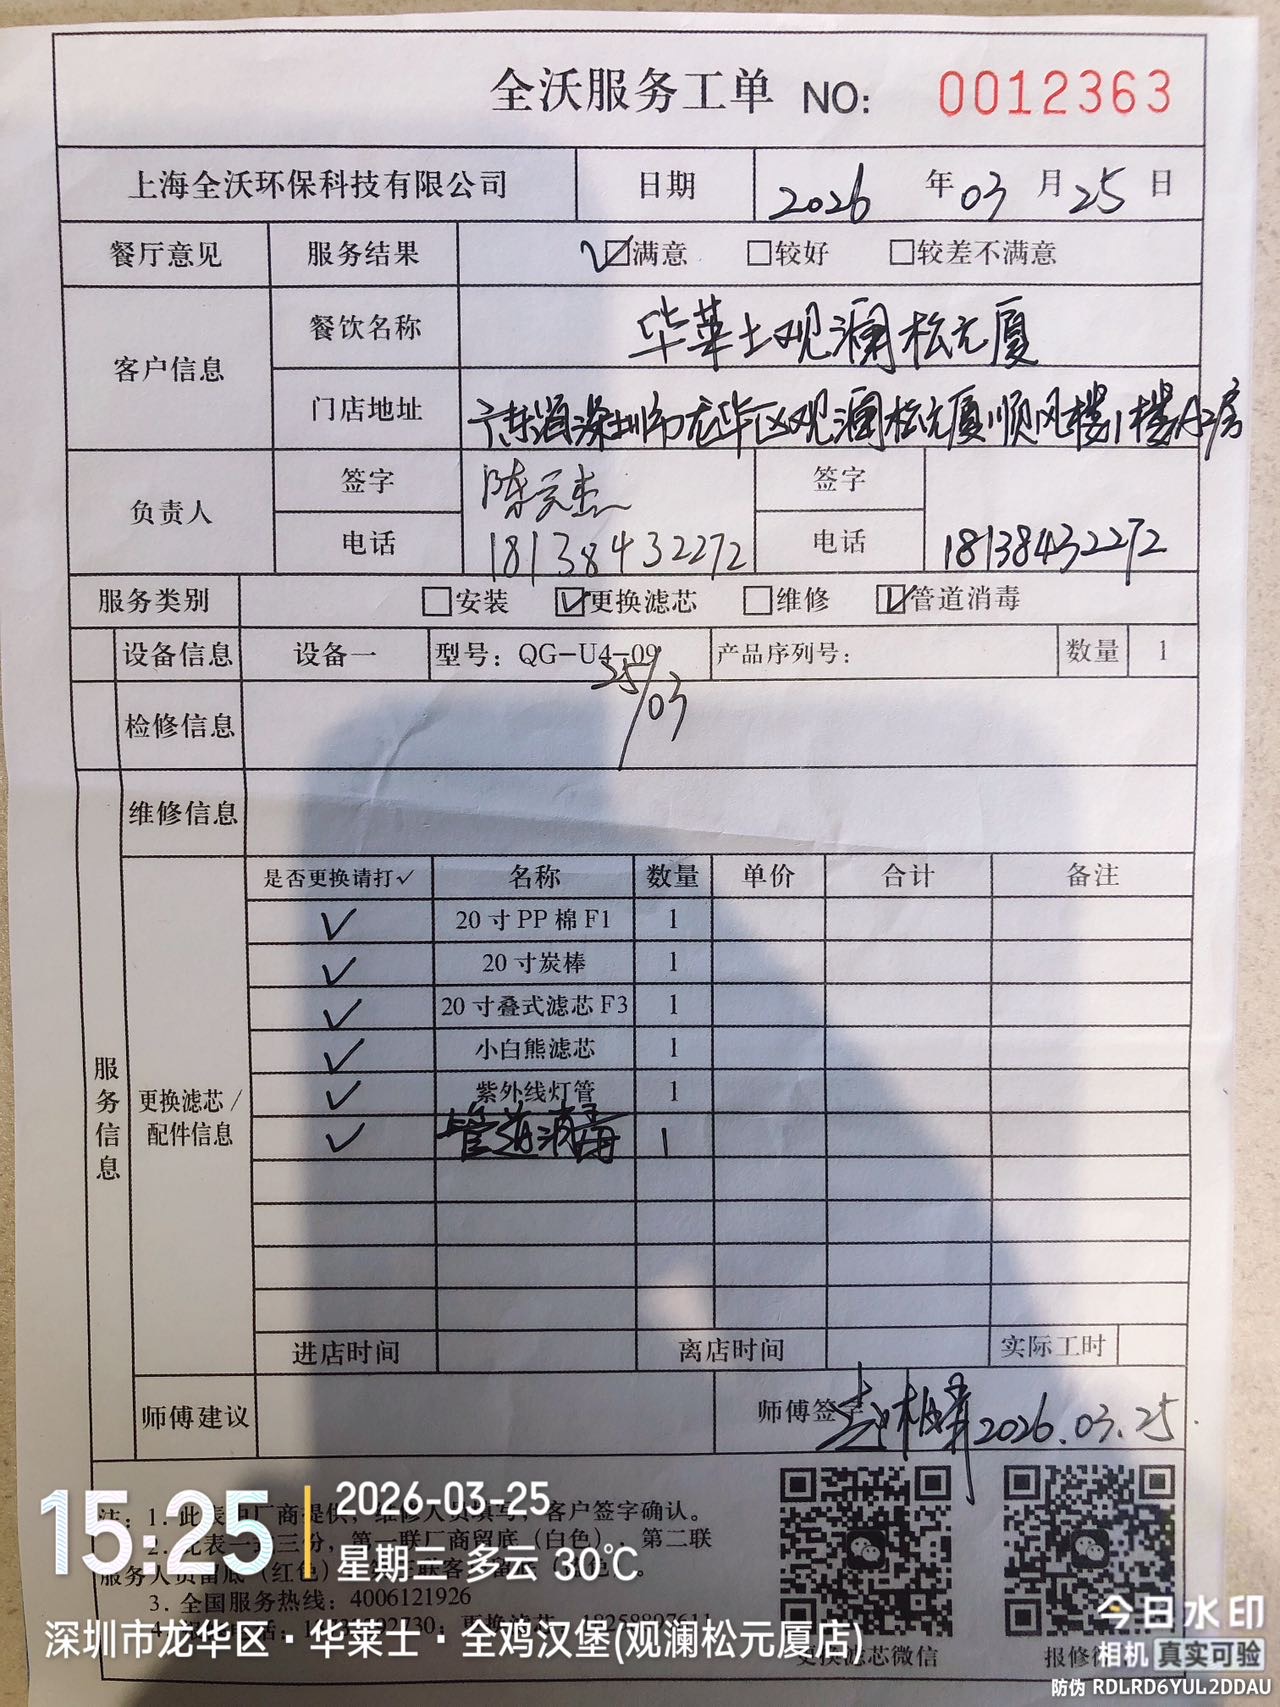 全沃服务工单 NO: 0012363
上海全沃环保科技有限公司 日期 2026 年 03 月 25 日
餐厅意见 服务结果 ☑满意 □较好 □较差不满意
客户信息 餐饮名称 华莱士观澜松元厦
门店地址 广东省深圳市龙华区观澜松元厦顺风楼1楼A2房
负责人 签字 签字
电话 18138432272 电话 18138432272
服务类别 □安装 ☑更换滤芯 □维修 ☑管道消毒
设备信息 设备一 型号：QG-U4-09 产品序列号： 数量 1
25/03
检修信息
维修信息
服务信息
更换滤芯/配件信息
是否更换请打✓ 名称 数量 单价 合计 备注
✓ 20寸PP棉F1 1
✓ 20寸炭棒 1
✓ 20寸叠式滤芯F3 1
✓ 小白熊滤芯 1
✓ 紫外线灯管 1
✓ 管道消毒 1
进店时间 离店时间 实际工时
师傅建议 师傅签字 2026.03.25.
注：1. 此表由厂商提供，维修人员填写，客户签字确认。
2. 此表一式三份，第一联厂商留底（白色）、第二联
服务人员留底（红色）
3. 全国服务热线：4006121926
更换滤芯微信
15:25
2026-03-25
星期三 多云 30℃
深圳市龙华区·华莱士·全鸡汉堡(观澜松元厦店)
今日水印
相机 真实可验
防伪 RDLRD6YUL2DDAU